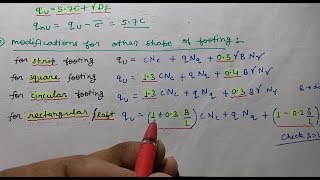 qu = 5.7C + γDf
qnu = qu - σ̄ = 5.7C
modifications for other shape of footing :-
for strip footing qu = CNc + qNq + 0.5 γ B Nγ
for square footing qu = 1.3 CNc + qNq + 0.4 γ B Nγ
for circular footing qu = 1.3 CNc + qNq + 0.3 γ B Nγ
for rectangular / raft qu = (1 + 0.3 B/L) CNc + qNq + (1 - 0.2 B/L)